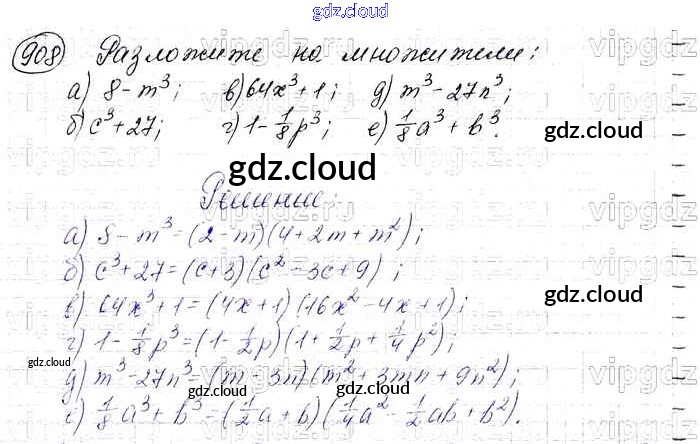 gdz.cloud
908 Разложите на множители:
а) 8 - m³; в) 64x³ + 1; д) m³ - 27n³;
б) c³ + 27; г) 1 - 1/8 p³; е) 1/8 a³ + b³.
gdz.cloud
gdz.cloud
Решение:
а) 8 - m³ = (2 - m)(4 + 2m + m²);
б) c³ + 27 = (c + 3)(c² - 3c + 9);
в) 64x³ + 1 = (4x + 1)(16x² - 4x + 1);
gdz.cloud
г) 1 - 1/8 p³ = (1 - 1/2 p)(1 + 1/2 p + 1/4 p²);
gdz.cloud
д) m³ - 27n³ = (m - 3n)(m² + 3mn + 9n²);
gdz.cloud
е) 1/8 a³ + b³ = (1/2 a + b)(1/4 a² - 1/2 ab + b²).